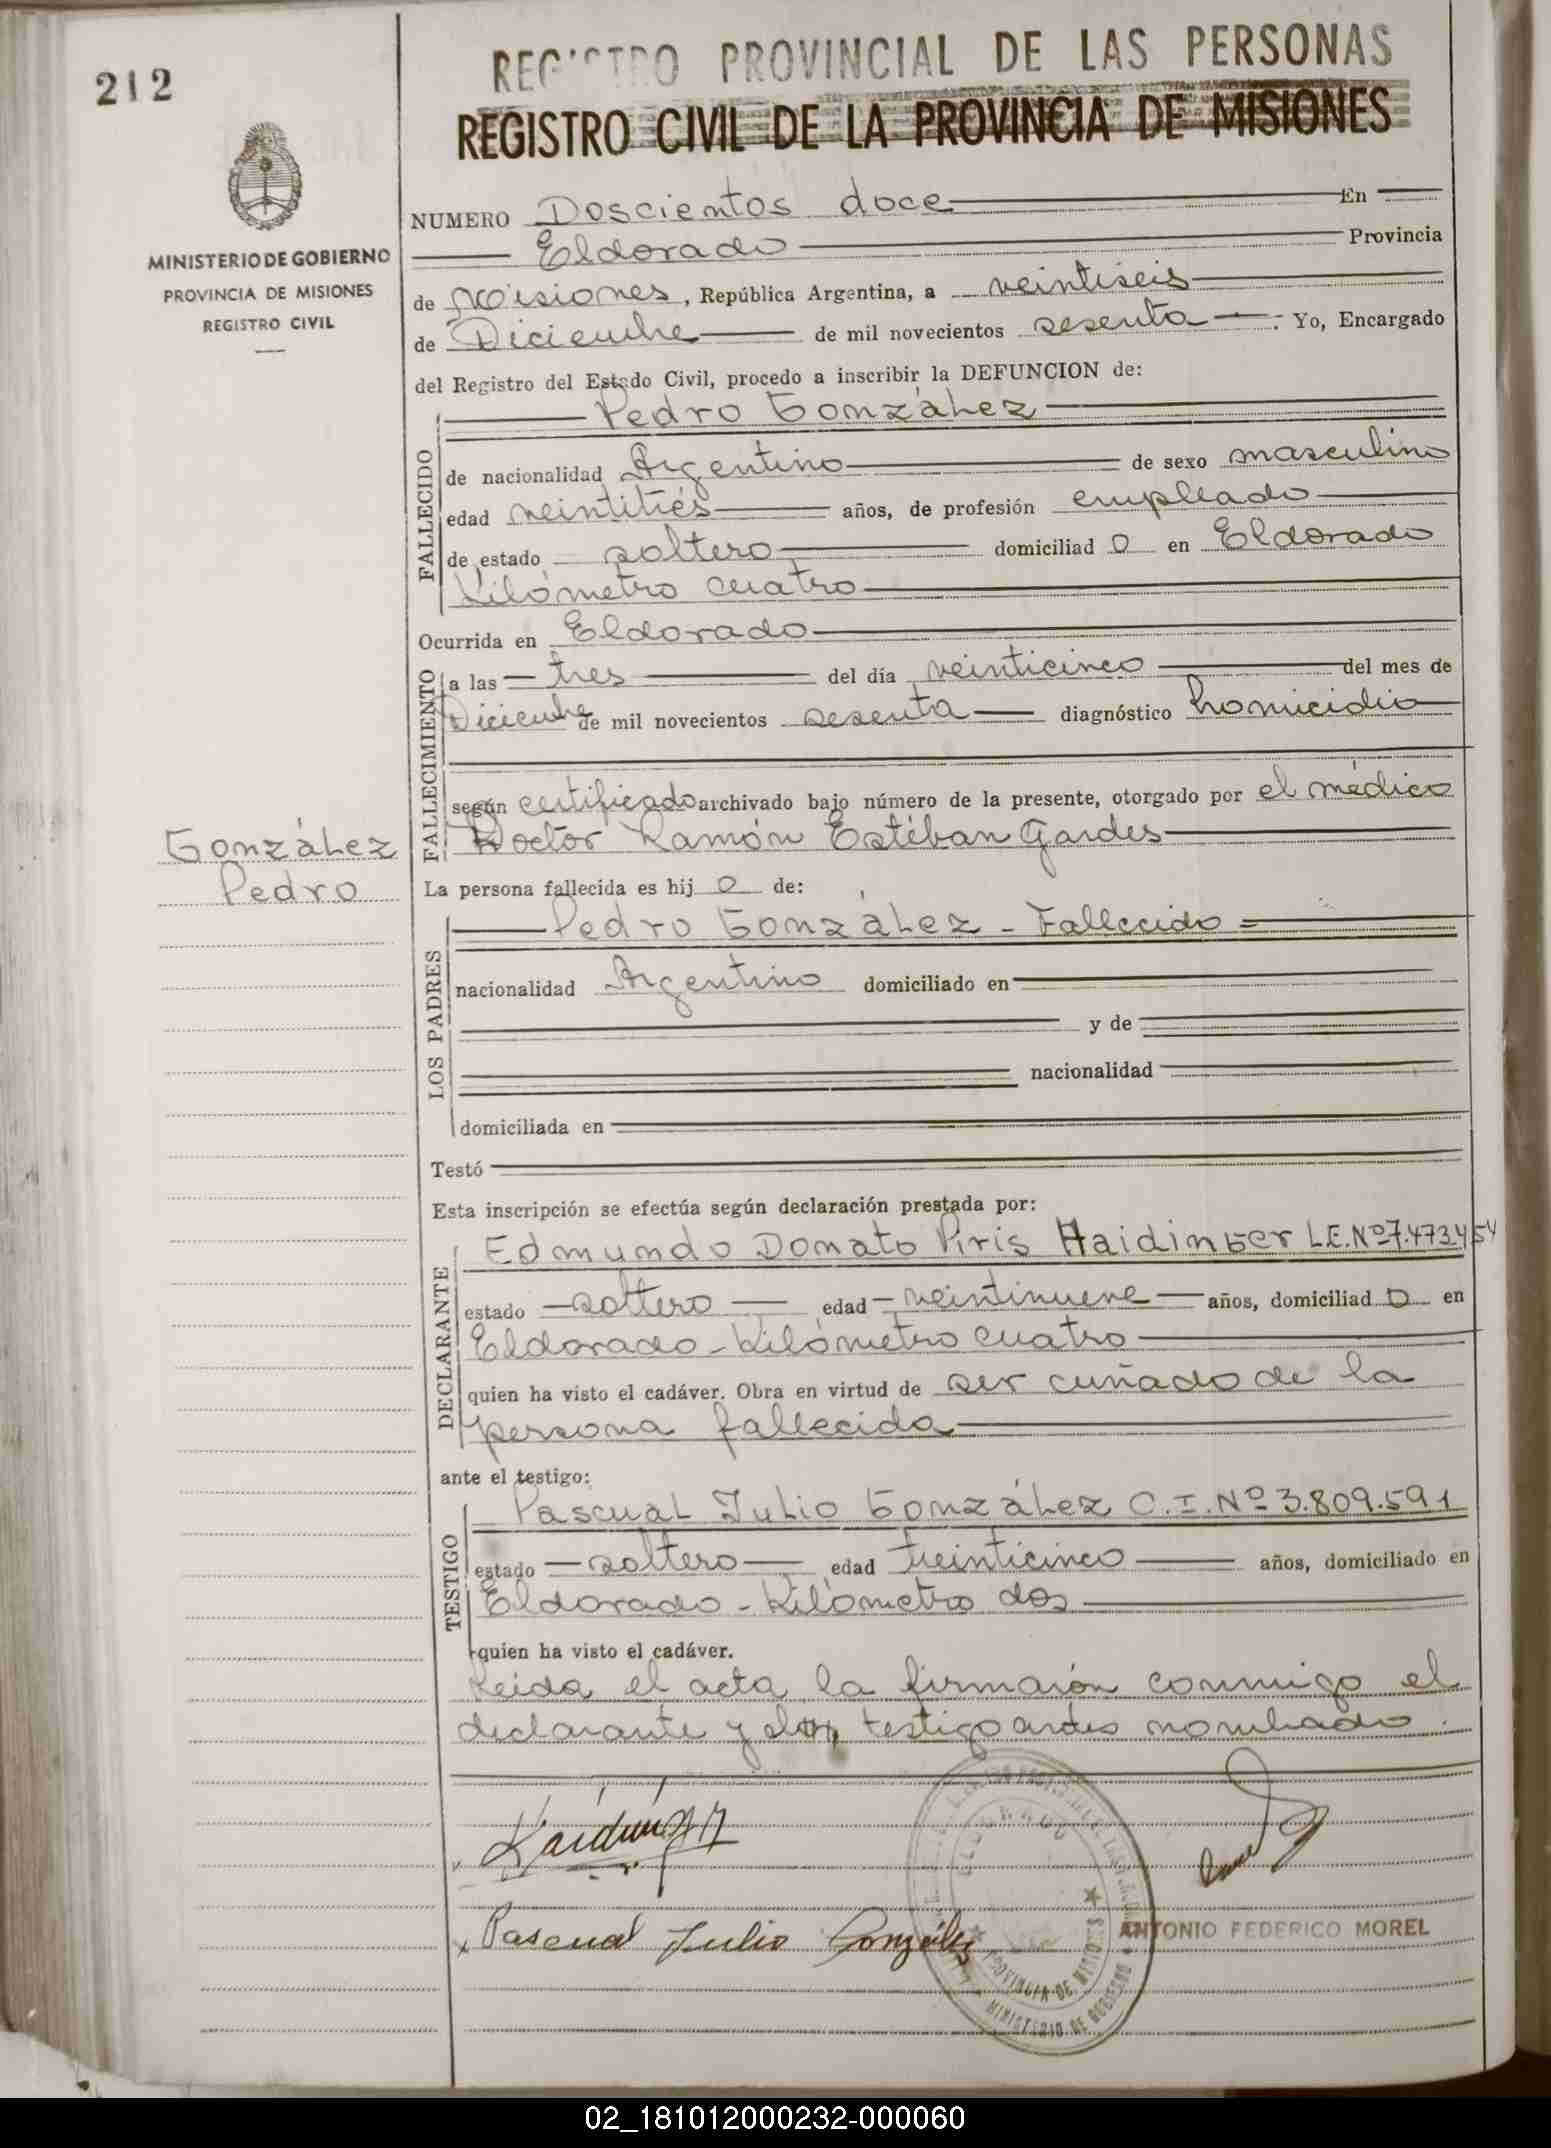 212
REGISTRO PROVINCIAL DE LAS PERSONAS
REGISTRO CIVIL DE LA PROVINCIA DE MISIONES
MINISTERIO DE GOBIERNO
PROVINCIA DE MISIONES
REGISTRO CIVIL
NUMERO Doscientos doce En
Eldorado Provincia
de Misiones, República Argentina, a veintiseis
de Diciembre de mil novecientos sesenta. Yo, Encargado
del Registro del Estado Civil, procedo a inscribir la DEFUNCION de:
Pedro Gonzálhez
FALLECIDO
de nacionalidad Argentino de sexo masculino
edad veintitrés años, de profesión empleado
de estado soltero domiciliad o en Eldorado
Kilómetro cuatro
Ocurrida en Eldorado
FALLECIMIENTO
a las tres del día veinticinco del mes de
Diciembre de mil novecientos sesenta diagnóstico homicidio
según certificado archivado bajo número de la presente, otorgado por el médico
Doctor Ramón Estéban Gardes
González
Pedro
La persona fallecida es hij o de:
LOS PADRES
Pedro González - Fallecido =
nacionalidad Argentino domiciliado en
y de
nacionalidad
domiciliada en
Testó
Esta inscripción se efectúa según declaración prestada por:
DECLARANTE
Edmundo Donato Piris Haidinger L.E. Nº 7.473.454
estado soltero edad veintinueve años, domiciliad o en
Eldorado - Kilómetro cuatro
quien ha visto el cadáver. Obra en virtud de ser cuñado de la
persona fallecida
ante el testigo:
TESTIGO
Pascual Julio González C.I. Nº 3.809.591
estado soltero edad treinticinco años, domiciliado en
Eldorado - Kilómetro dos
quien ha visto el cadáver.
Leida el acta la firmarón conmigo el
declarante y el testigo antes nombrado.
Haidinger
Pascual Julio González
ELDORADO
PROVINCIA DE MISIONES
MINISTERIO DE GOBIERNO
ANTONIO FEDERICO MOREL
02_181012000232-000060